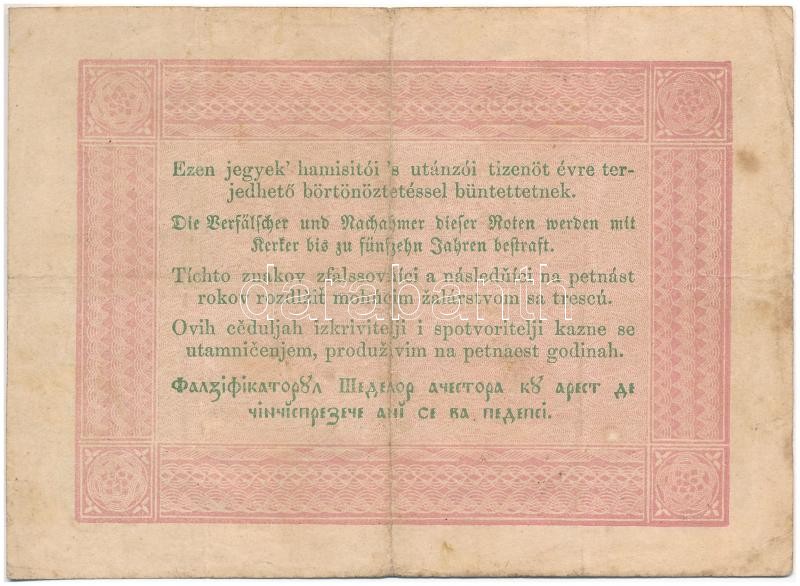 Ezen jegyek' hamisitói 's utánzói tizenöt évre ter-
jedhető börtönöztetéssel büntettetnek.
Die Verfälscher und Nachahmer dieser Noten werden mit
Kerker bis zu fünfzehn Jahren bestraft.
Tíchto znakov zfalssovňíci a násleďňíci na petnást
rokov rozdlžiť mohúcím žalárstvom sa trescú.
Ovih cěduljah izkrivitelji i spotvoritelji kazne se
utamničenjem, produživim na petnaest godinah.
Фалзіфікаторꙋл Шеделор ачестора кꙋ арест де
чінчіспрезече ані се ва педепсі.
darabanth